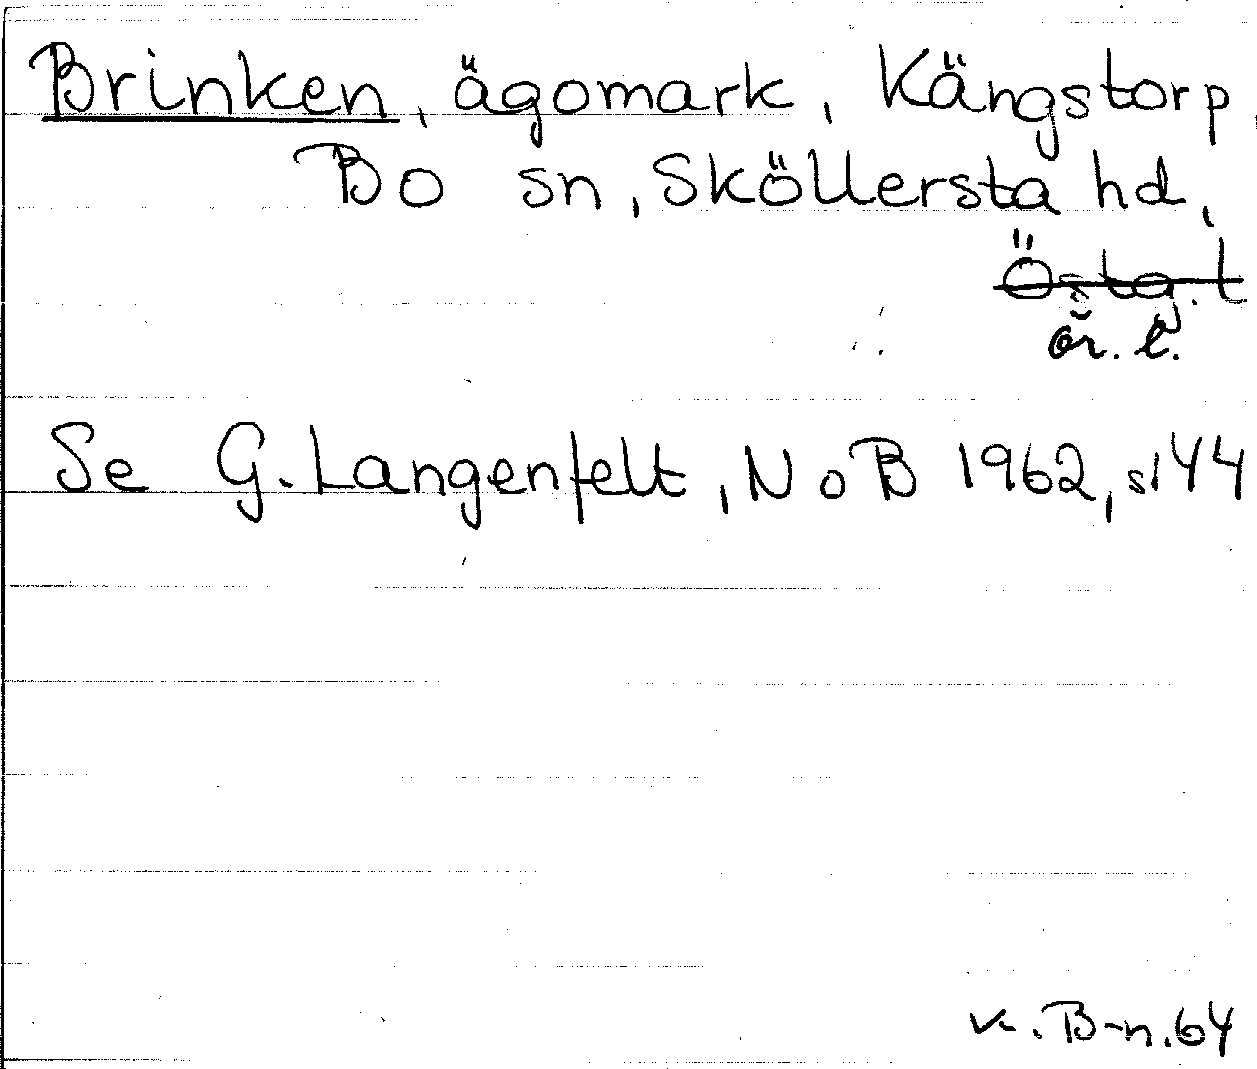 Brinken, ägomark, Kängstorp,
Bo sn, Sköllersta hd,
Östg. l
ör. l.
Se G. Langenfelt, NoB 1962, s144
K. B-n. 64